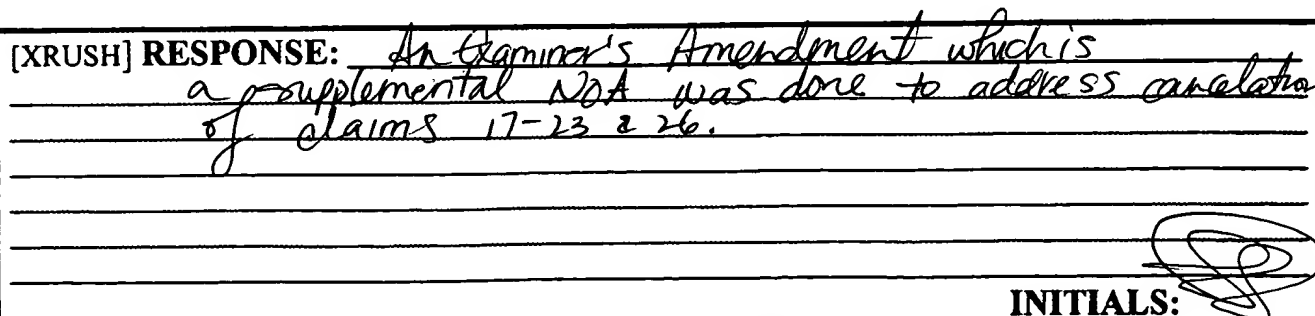 [XRUSH] RESPONSE: An Examiner's Amendment which is
a supplemental NOA was done to address cancelation
of claims 17-23 & 26.
INITIALS: